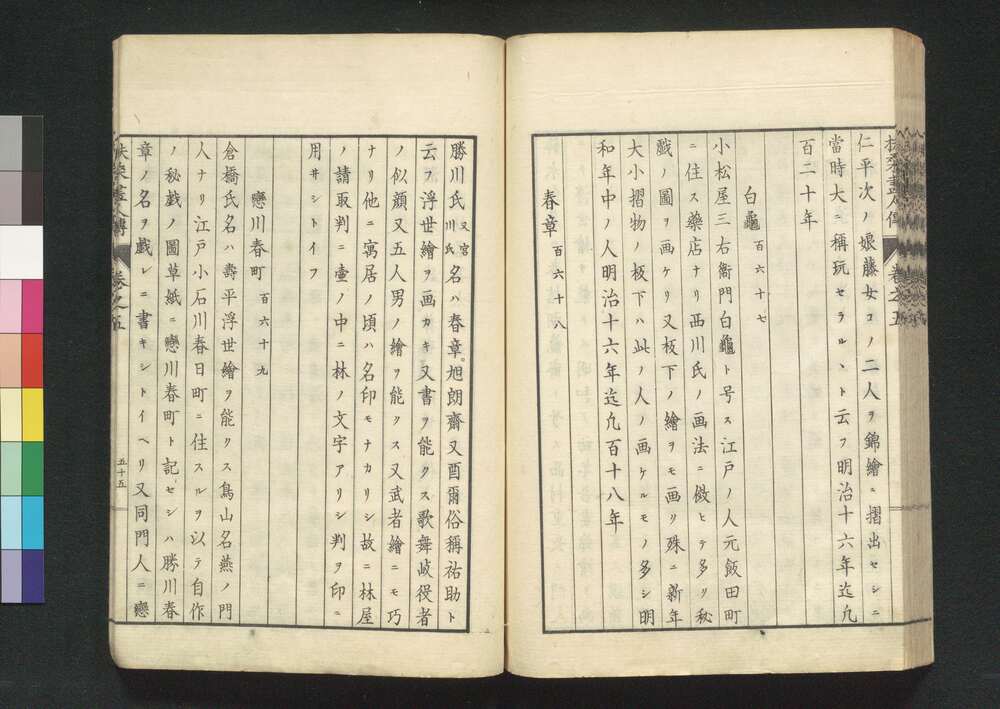 仁平次ノ娘藤女コノ二人ヲ錦繪ニ摺出セシニ
當時大ニ稱玩セラルヽト云フ明治十六年迄凡
百二十年
白龜 百六十七
小松屋三右衞門白龜ト号ス江戸ノ人元飯田町
ニ住ス藥店ナリ西川氏ノ画法ニ傚ヒテ多り秘
戲ノ圖ヲ画ケリ又板下ノ繪ヲモ画リ殊ニ新年
大小摺物ノ板下ハ此ノ人ノ画ケルモノ多シ明
和年中ノ人明治十六年迄凡百十八年
春章 百六十八
勝川氏 又宮川氏 名ハ春章旭朗齋又酉爾俗稱祐助ト
云フ浮世繪ヲ画カキ又書ヲ能クス歌舞岐役者
ノ似顔又五人男ノ繪ヲ能クス又武者繪ニモ巧
ナリ他ニ寓居ノ頃ハ名印モナカリシ故ニ林屋
ノ請取判ニ壷ノ中ニ林ノ文字アリシ判ヲ印ニ
用井シトイフ
戀川春町 百六十九
倉橋氏名ハ壽平浮世繪ヲ能クス鳥山名燕ノ門
人ナリ江戸小石川春日町ニ住スルヲ以テ自作
ノ秘戲ノ圖草紙ニ戀川春町ト記セシハ勝川春
章ノ名ヲ戲レニ書キシトイヘリ又同門人ニ戀
扶桑畫人傳 卷之五
五十五